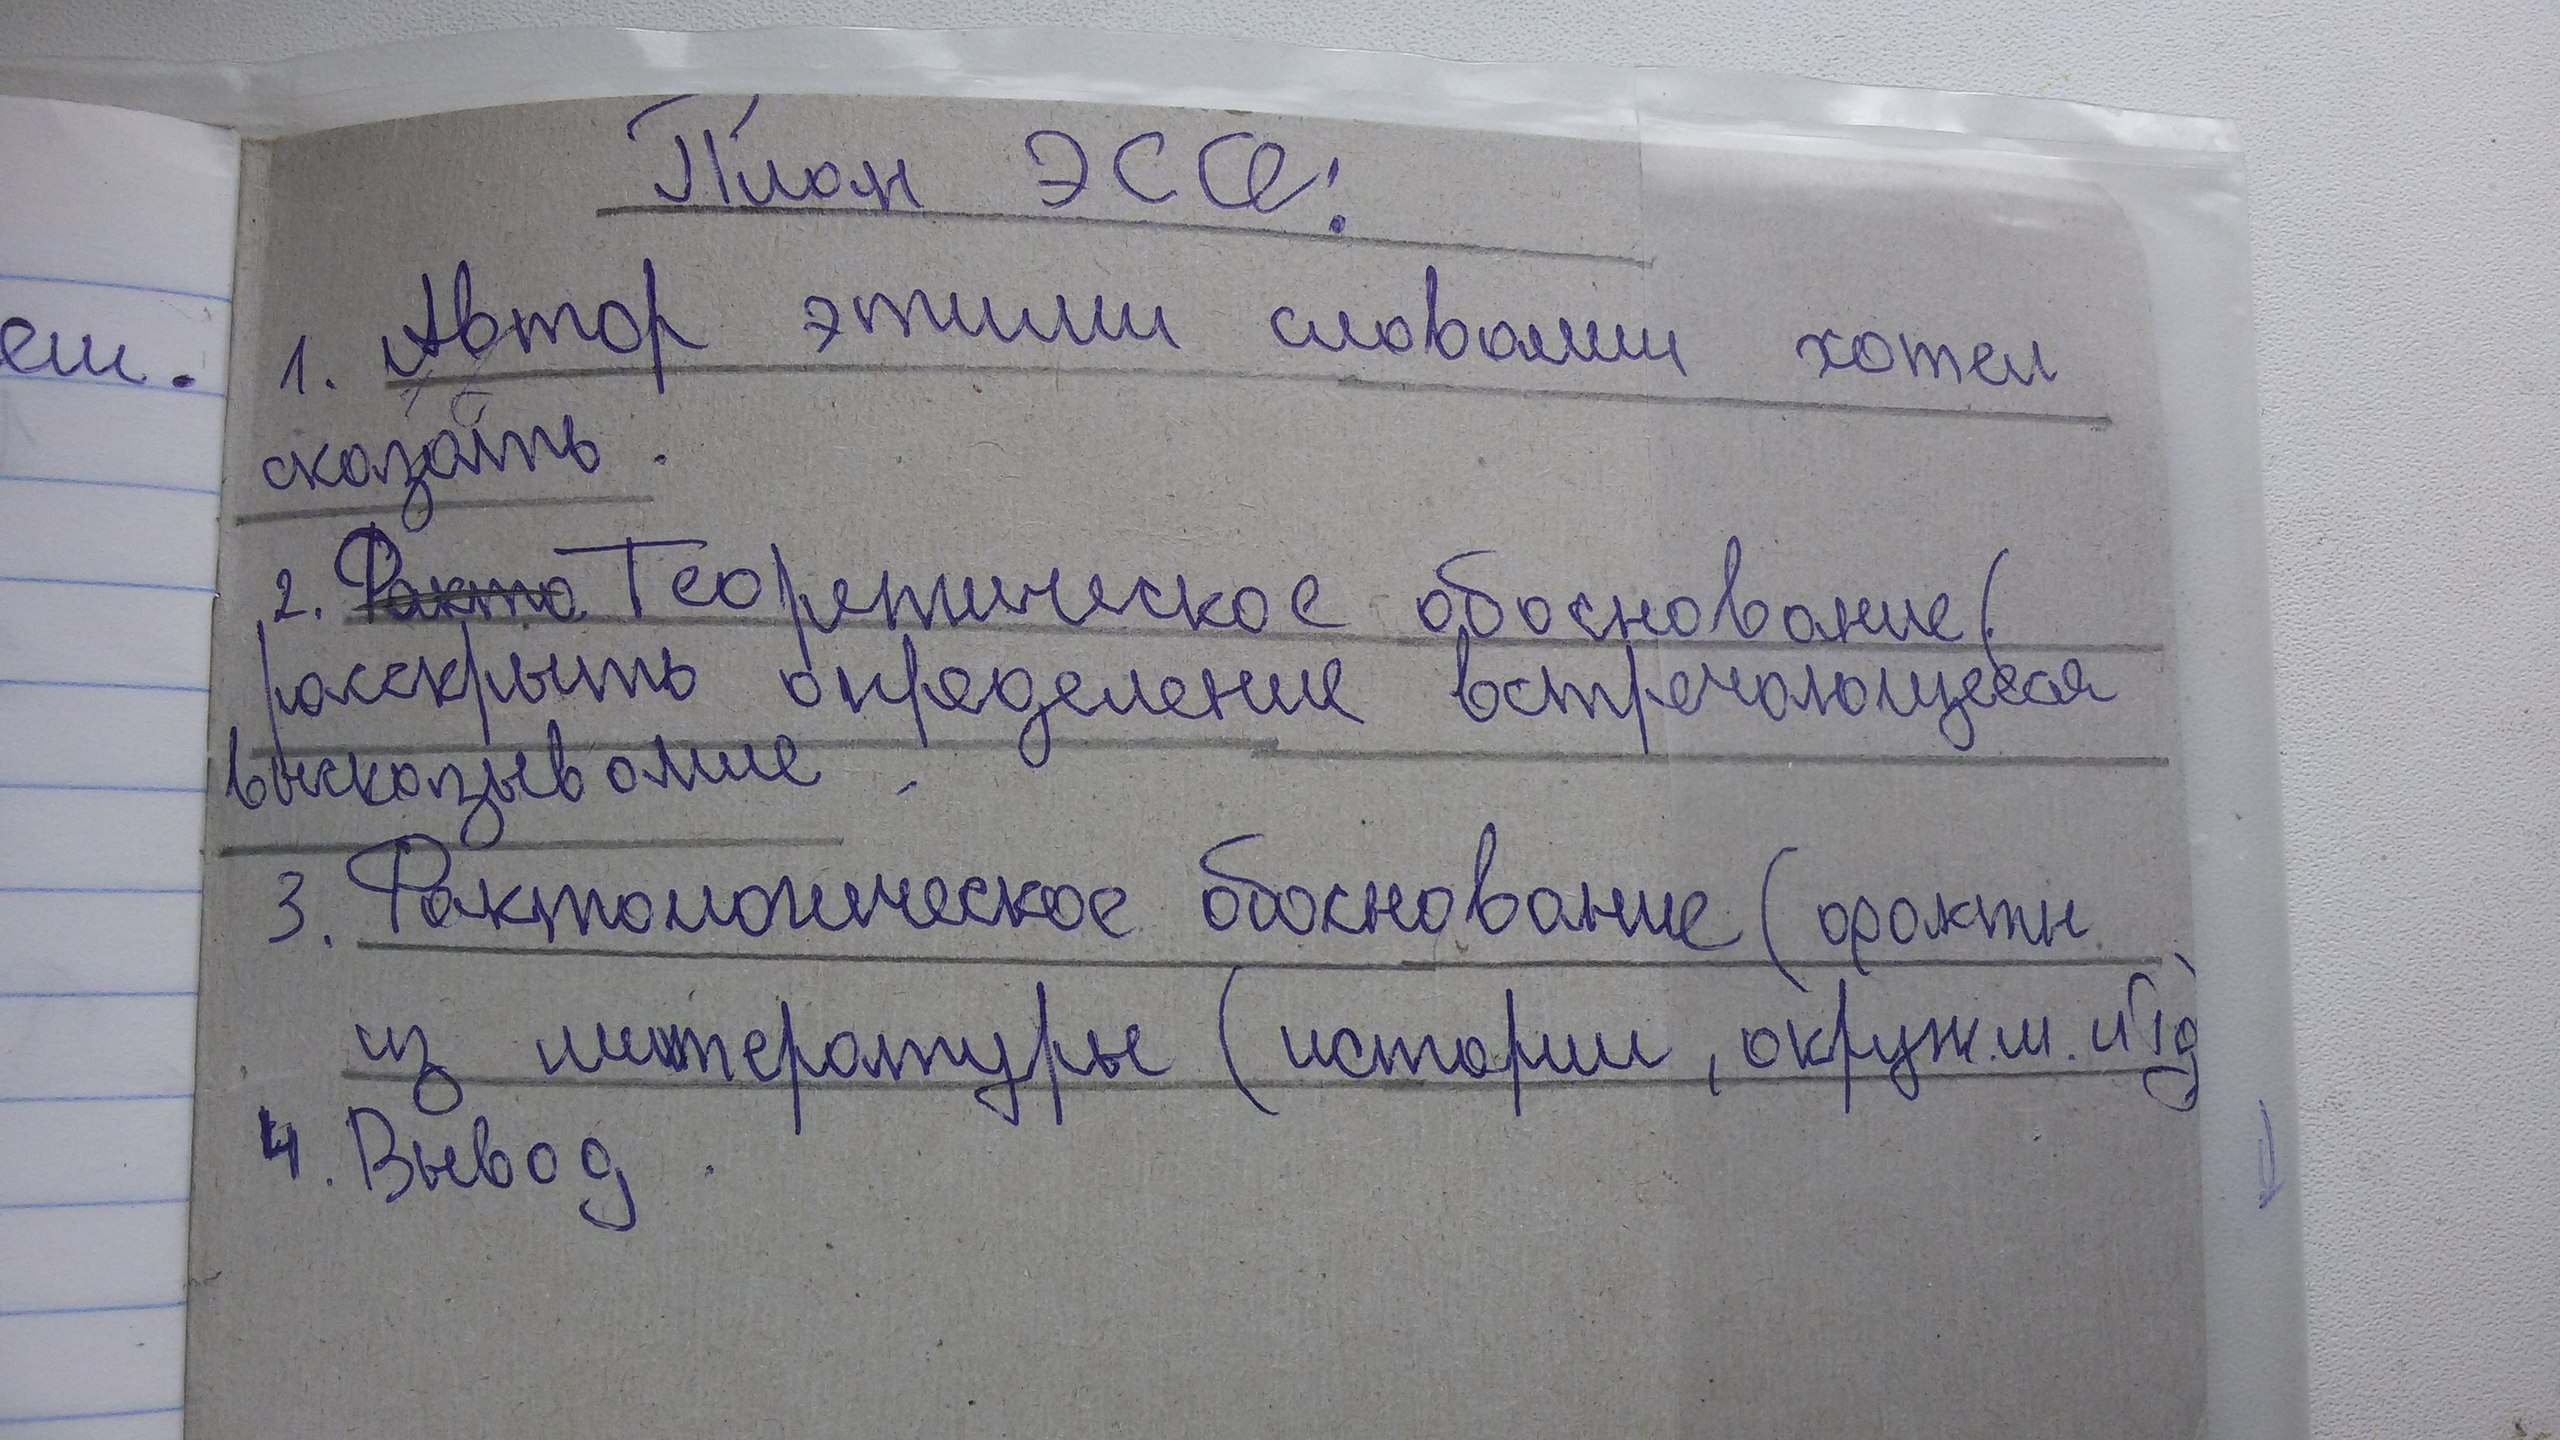 План ЭССЕ:
ет.
1. Автор этими словами хотел
сказать.
2. Факто Теоретическое обоснование(
расскрыть определение встречающееся
высказывание.
3. Фактологическое обоснование (факты
из литературы (истории, окруж.м. и тд)
4. Вывод.